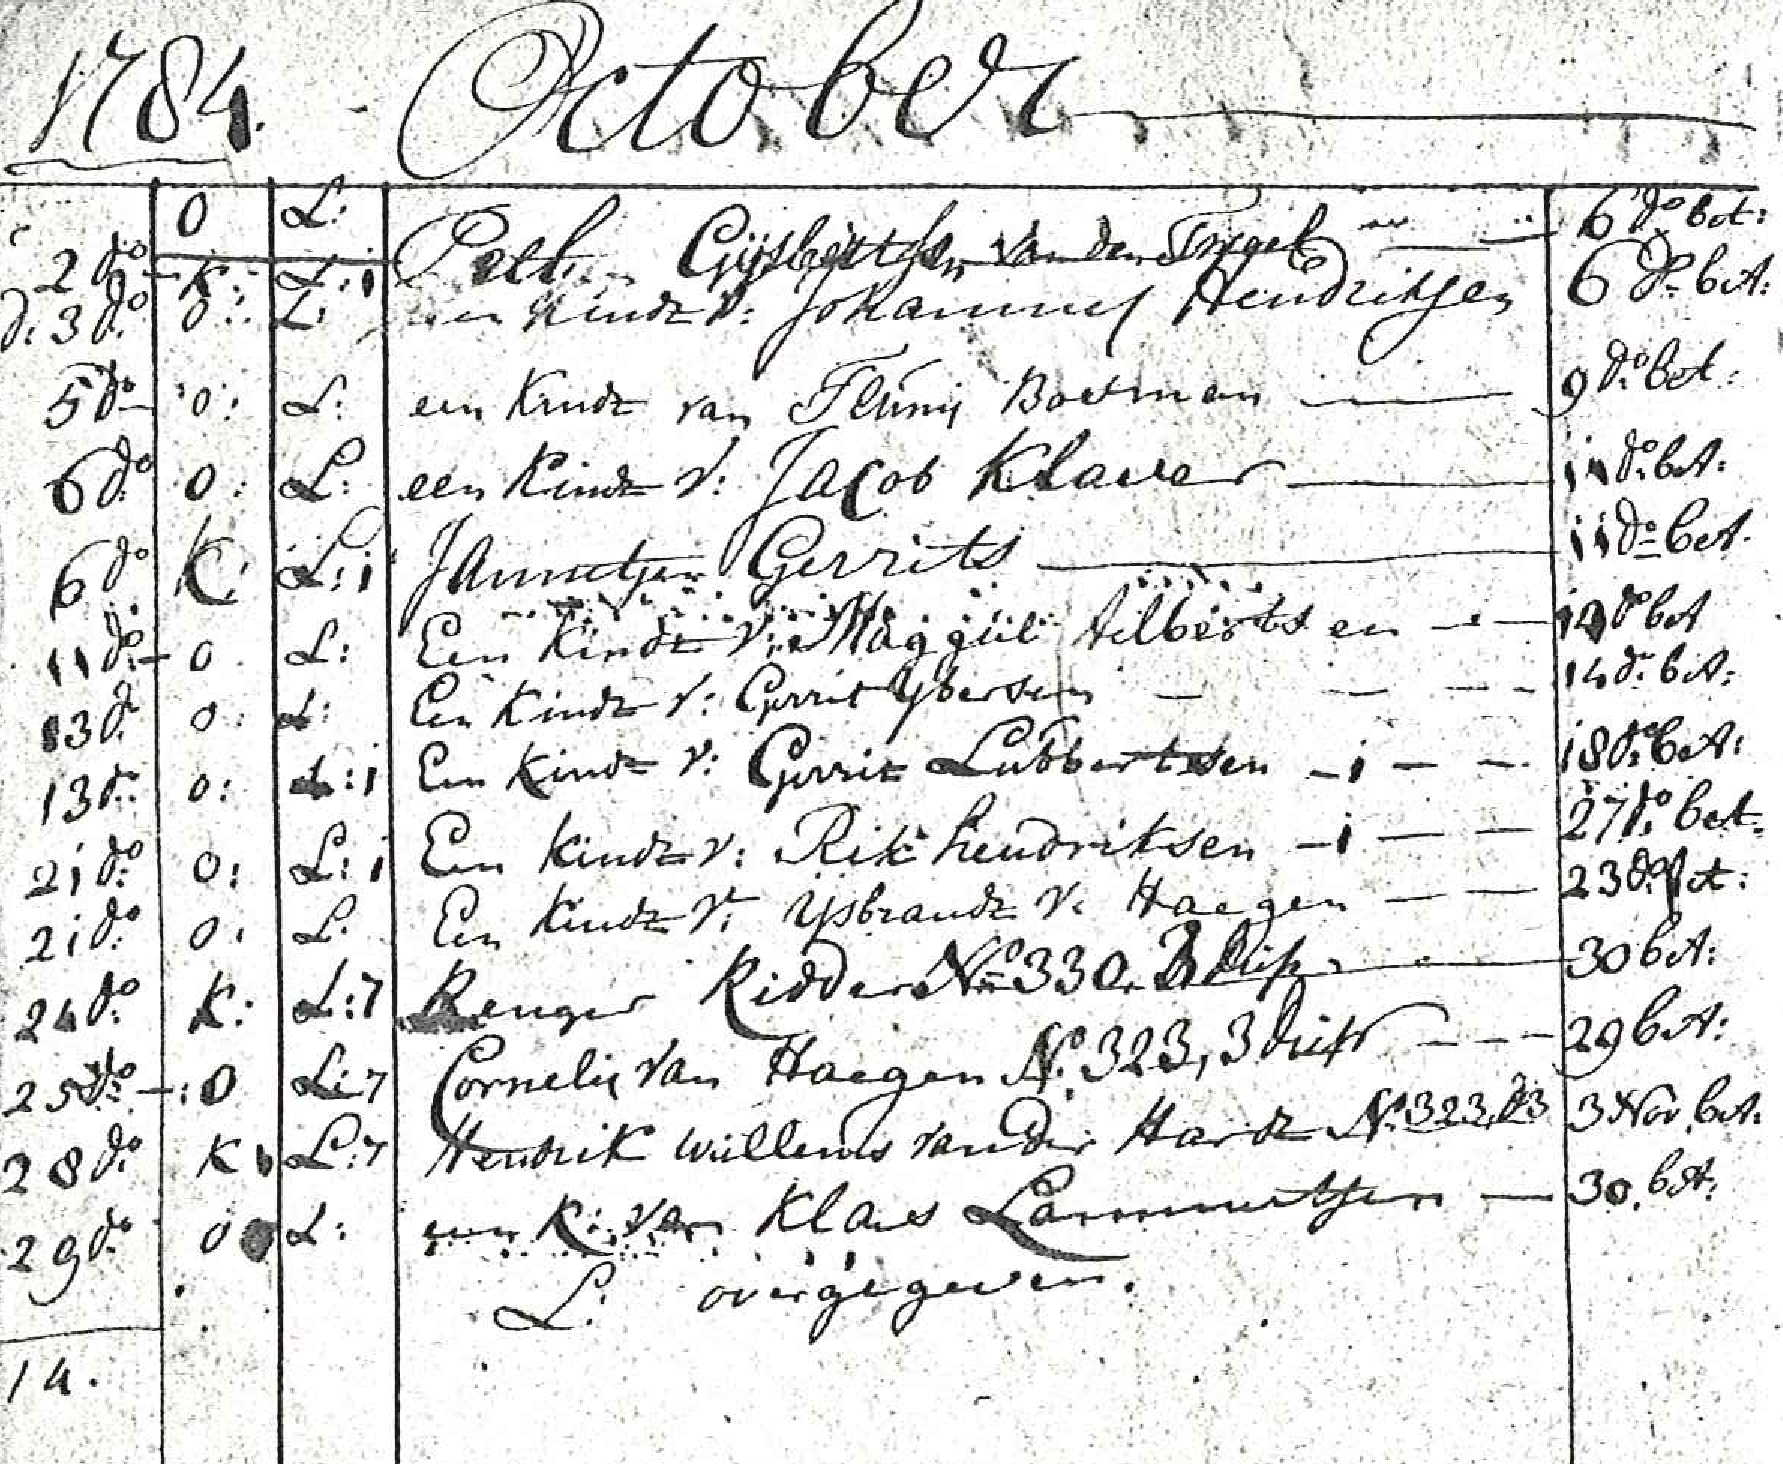 1784. October
O L:
2 do K: L: i Gijsbertsen van den 6 do bet:
d: 3 do O: L: Kindt v: Johannes Hendriksen 6 do bet:
5 do o: L: een Kindt van Boetman 9 do bet:
6 do o: L: een Kindt v: Jacob Klaver 11 do bet:
6 do K: L: i Jannetjen Gerrits 11 do bet.
11 do o L: Een Kindt v: Albertsen 12 do bet
13 do o: L: Een Kindt v: Gerrit Ybersen 14 do bet:
13 do o: L: i Een Kindt v: Gerrit Lubbertsen - i - - 18 do bet:
21 do o: L: i Een Kindt v: Rik hendriksen - i - - 27 do bet.
21 do o. L. Een Kindt v: Ysbrandt v. Haegen - - 23 do bet:
24 do K: L: 7 Renger Ridder No 330. 30 bet:
25 do - : O L: 7 Cornelis van Haegen N. 323, 3 - - - 29 bet:
28 do K L: 7 Hendrik willems van der Hardt N. 323 3 Nov. bet.
29 do o L: een K: van Klaes Lammertsen - 30. bet:
L: overgegeven.
14.